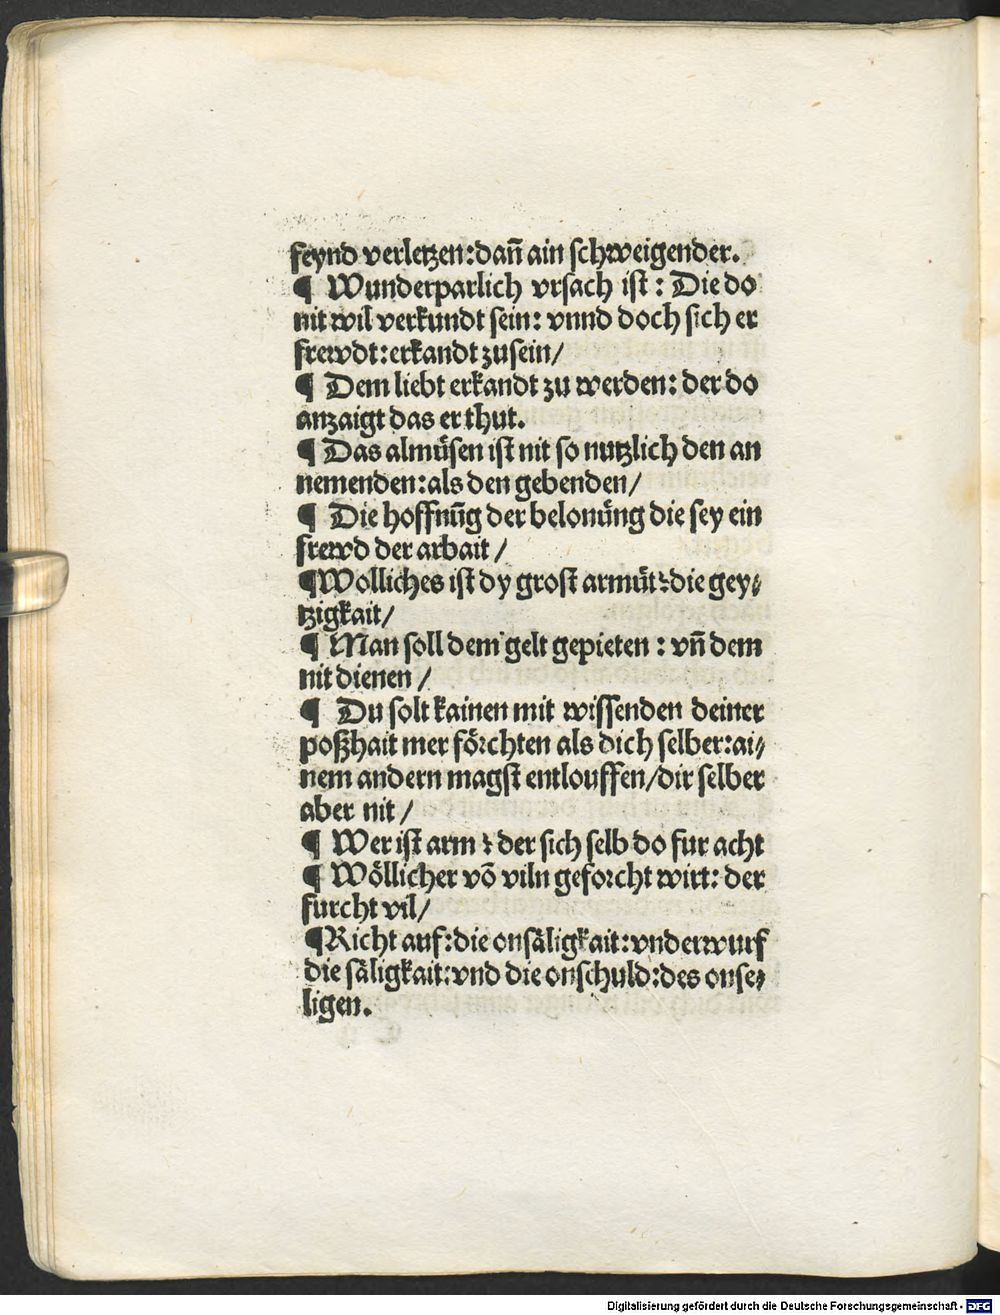 feynd verletzen:dañ ain schweigender.
¶ Wunderparlich vrsach ist: Die do
nit wil verkundt sein: vnnd doch sich er
frewdt:erkandt zusein/
¶ Dem liebt erkandt zu werden: der do
anzaigt das er thut.
¶ Das almůsen ist nit so nutzlich den an
nemenden:als den gebenden/
¶ Die hoffnũg der belonůng die sey ein
frewd der arbait /
¶Wolliches ist dy grost armůt?die gey⸗
tzigkait/
¶ Man soll dem gelt gepieten : vñ dem
nit dienen /
¶ Du solt kainen mit wissenden deiner
poßhait mer förchten als dich selber:ai⸗
nem andern magst entlouffen/dir selber
aber nit /
¶ Wer ist arm ? der sich selb do fur acht
¶ Wöllicher võ viln geforcht wirt: der
furcht vil/
¶Richt auf:die onsäligkait:vnderwurf
die säligkait:vnd die onschuld:des onse⸗
ligen.
Digitalisierung gefördert durch die Deutsche Forschungsgemeinschaft - DFG